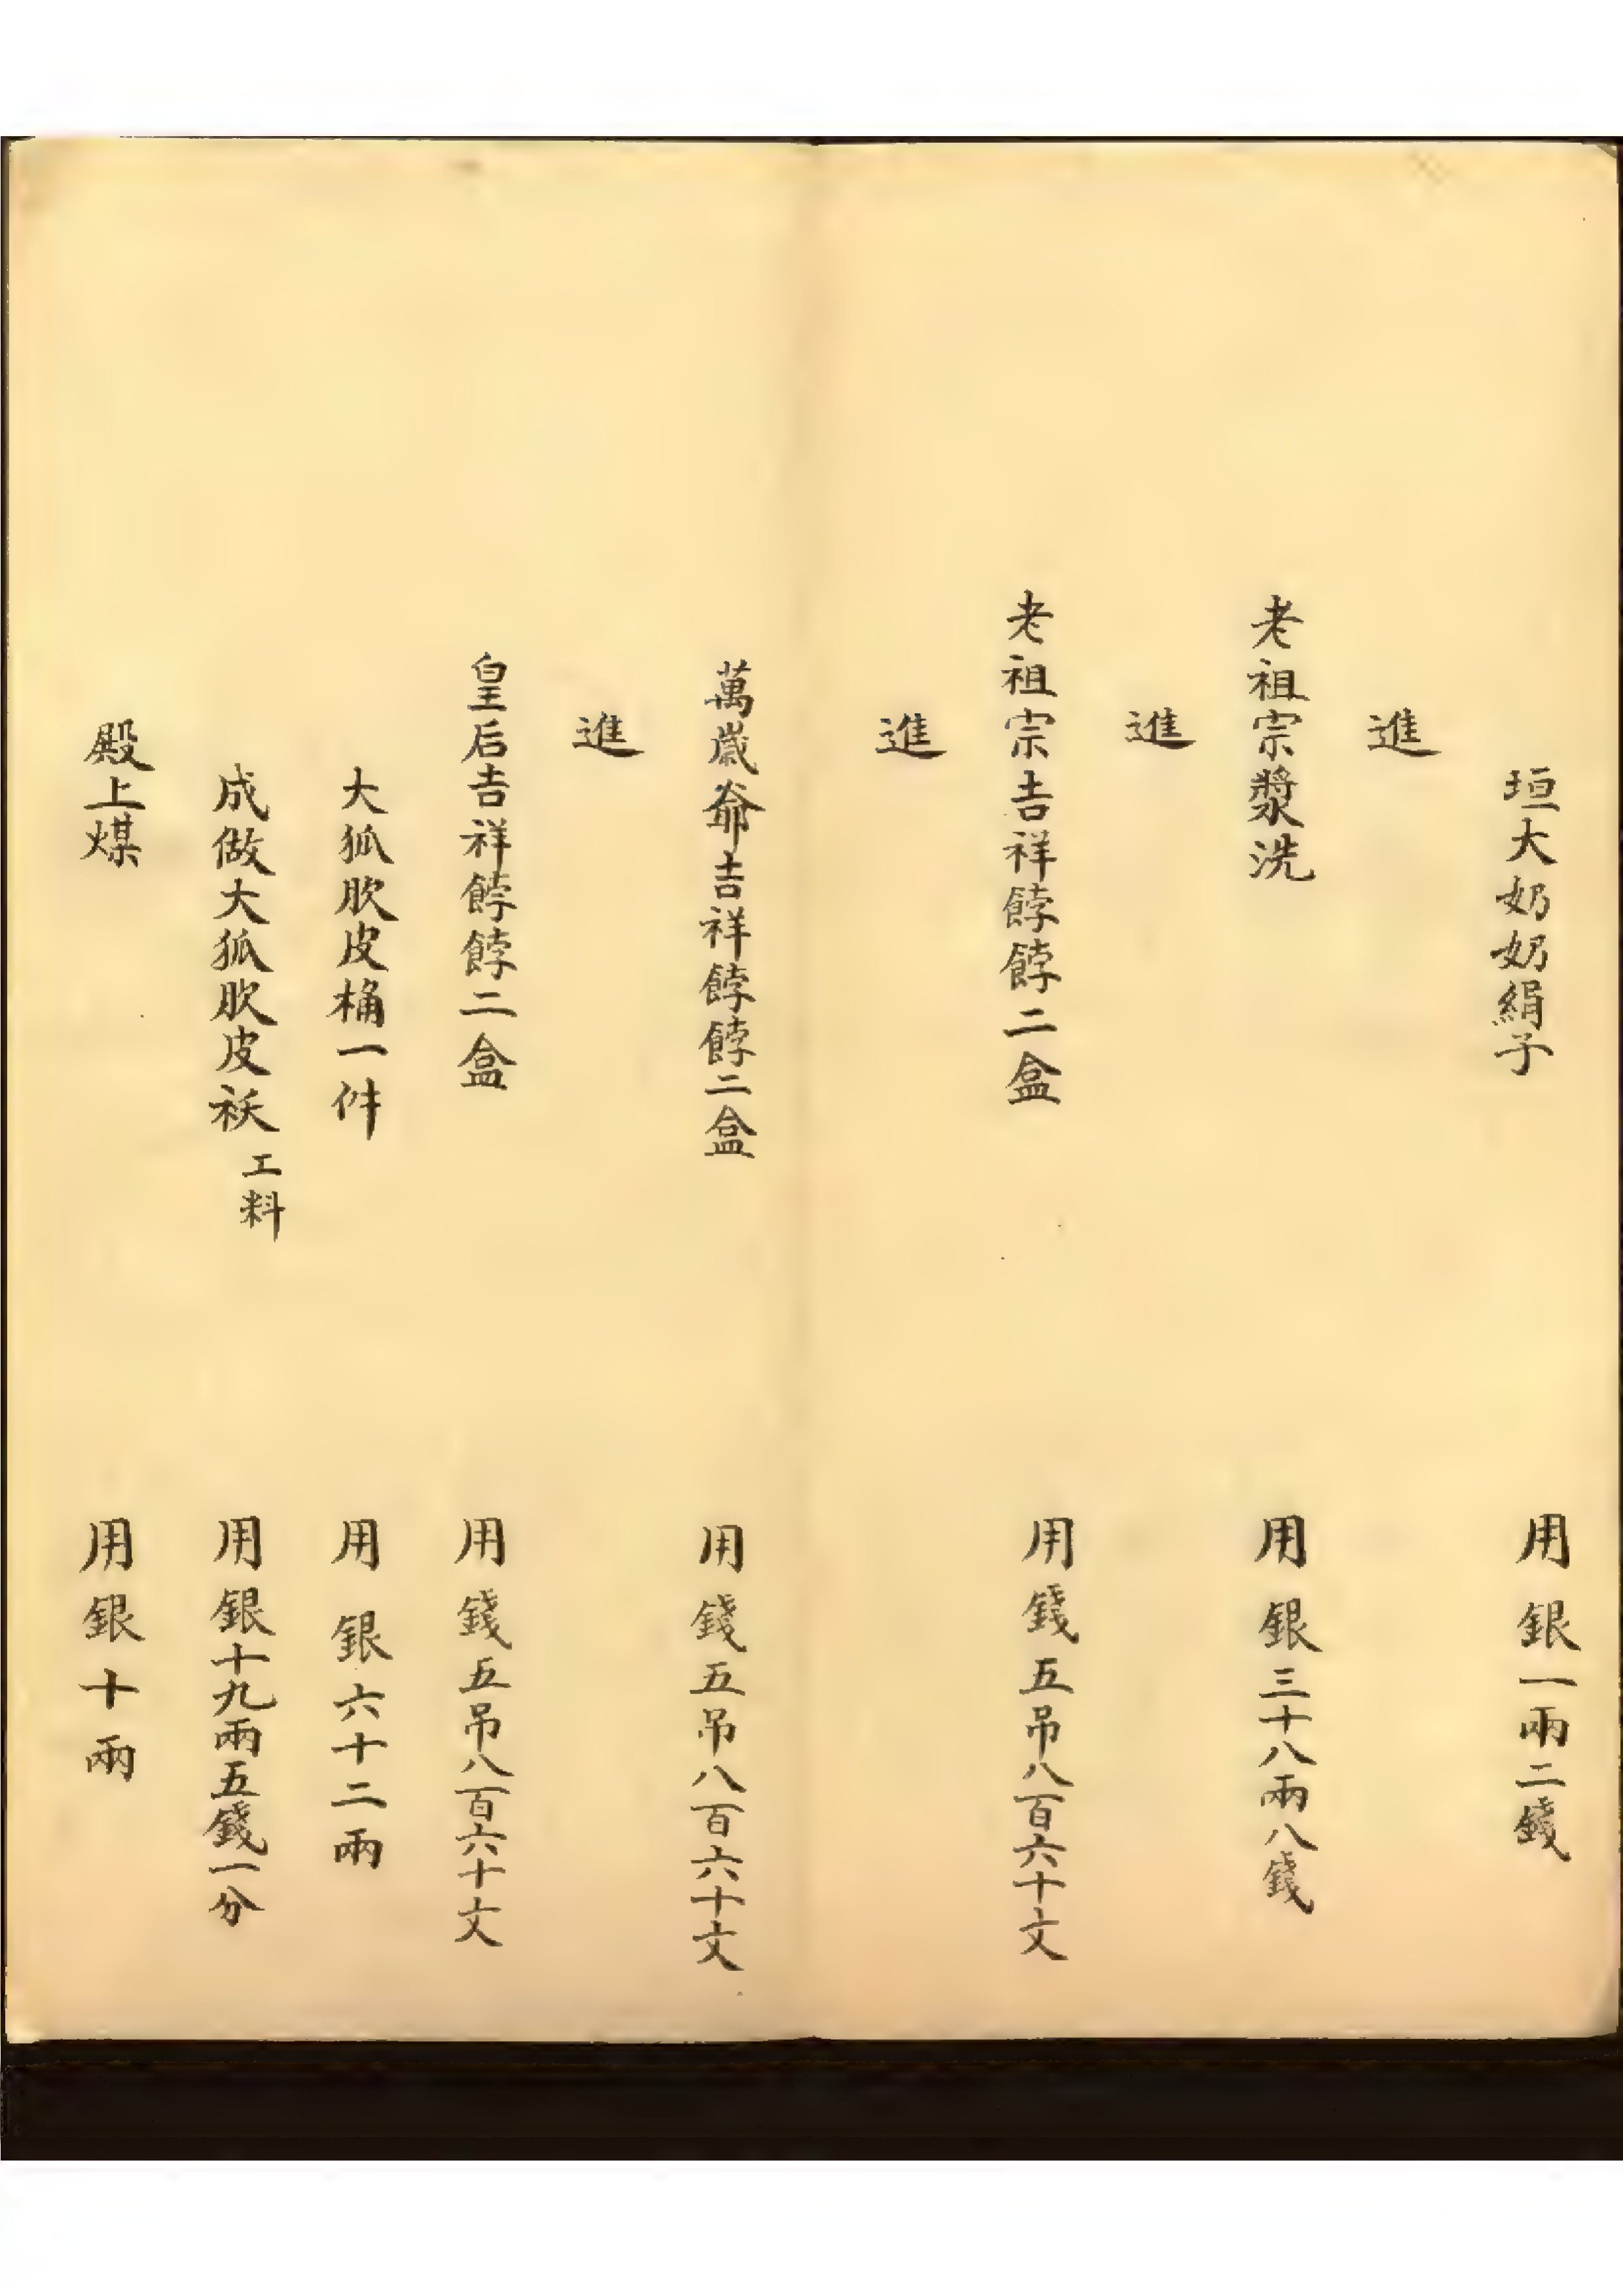 垣大奶奶絹子 用銀一兩二錢
進
老祖宗漿洗 用銀三十八兩八錢
進
老祖宗吉祥餑餑二盒 用錢五吊八百六十文
進
萬歲爺吉祥餑餑二盒 用錢五吊八百六十文
進
皇后吉祥餑餑二盒 用錢五吊八百六十文
大狐肷皮桶一件 用銀六十二兩
成做大狐肷皮袄工料 用銀十九兩五錢一分
殿上煤 用銀十兩